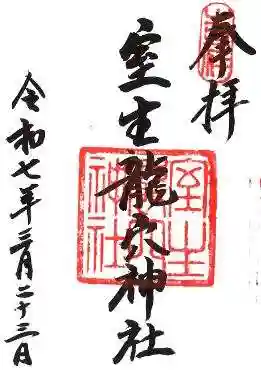 奉拝
室生龍穴神社
令和七年三月二十三日